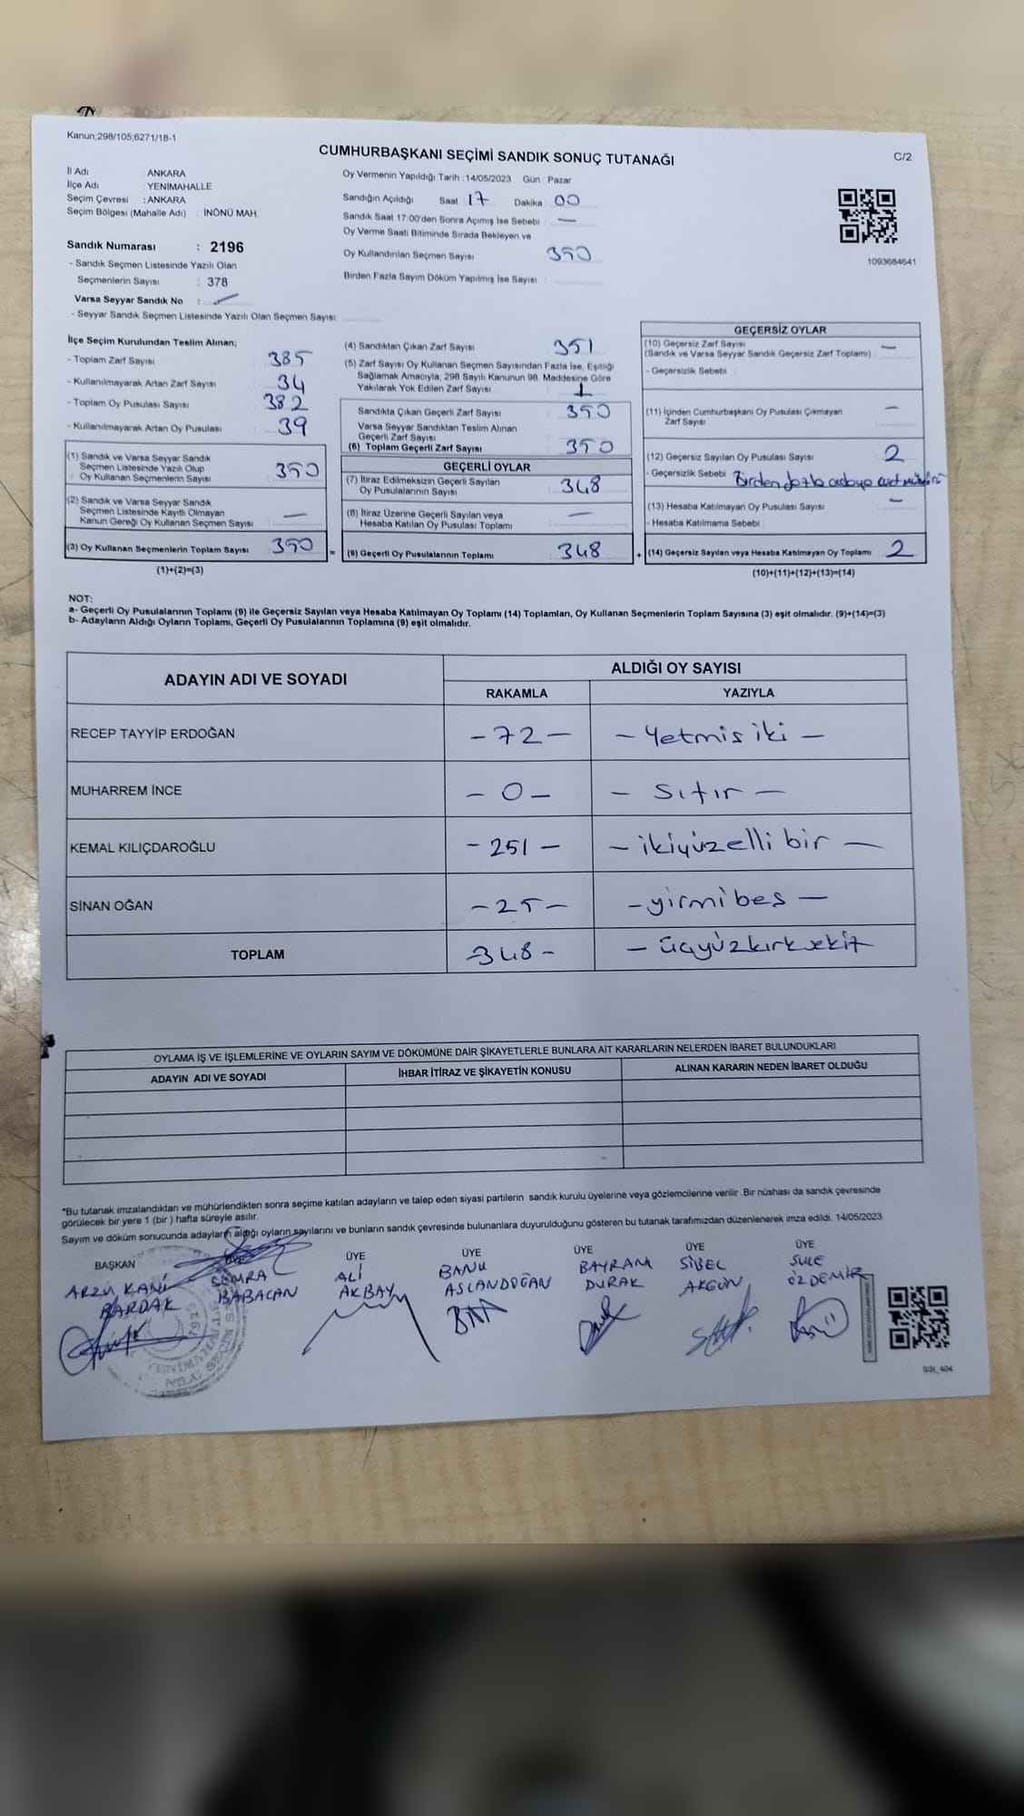 Kanun;298/105;6271/18-1
CUMHURBAŞKANI SEÇİMİ SANDIK SONUÇ TUTANAĞI
C/2
İl Adı : ANKARA
İlçe Adı : YENİMAHALLE
Seçim Çevresi : ANKARA
Seçim Bölgesi (Mahalle Adı) : İNÖNÜ MAH.
Oy Vermenin Yapıldığı Tarih :14/05/2023 Gün : Pazar
Sandığın Açıldığı Saat 17 Dakika 00
Sandık Saat 17:00'den Sonra Açımış İse Sebebi : —
Oy Verme Saati Bitiminde Sırada Bekleyen ve
Oy Kullandırılan Seçmen Sayısı 350
Birden Fazla Sayım Döküm Yapılmış İse Sayısı :
1093684641
Sandık Numarası : 2196
- Sandık Seçmen Listesinde Yazılı Olan
Seçmenlerin Sayısı : 378
Varsa Seyyar Sandık No :
- Seyyar Sandık Seçmen Listesinde Yazılı Olan Seçmen Sayısı:
İlçe Seçim Kurulundan Teslim Alınan;
- Toplam Zarf Sayısı 385
- Kullanılmayarak Artan Zarf Sayısı 34
- Toplam Oy Pusulası Sayısı 382
- Kullanılmayarak Artan Oy Pusulası 39
(1) Sandık ve Varsa Seyyar Sandık
Seçmen Listesinde Yazılı Olup
Oy Kullanan Seçmenlerin Sayısı 350
(2) Sandık ve Varsa Seyyar Sandık
Seçmen Listesinde Kayıtlı Olmayan
Kanun Gereği Oy Kullanan Seçmen Sayısı —
(3) Oy Kullanan Seçmenlerin Toplam Sayısı 350
(1)+(2)=(3)
(4) Sandıktan Çıkan Zarf Sayısı 351
(5) Zarf Sayısı Oy Kullanan Seçmen Sayısından Fazla İse, Eşitliği
Sağlamak Amacıyla, 298 Sayılı Kanunun 98. Maddesine Göre
Yakılarak Yok Edilen Zarf Sayısı 1
Sandıkta Çıkan Geçerli Zarf Sayısı 350
Varsa Seyyar Sandıktan Teslim Alınan
Geçerli Zarf Sayısı
(6) Toplam Geçerli Zarf Sayısı 350
GEÇERLİ OYLAR
(7) İtiraz Edilmeksizin Geçerli Sayılan
Oy Pusulalarının Sayısı 348
(8) İtiraz Üzerine Geçerli Sayılan veya
Hesaba Katılan Oy Pusulası Toplamı —
= (9) Geçerli Oy Pusulalarının Toplamı 348
GEÇERSİZ OYLAR
(10) Geçersiz Zarf Sayısı
(Sandık ve Varsa Seyyar Sandık Geçersiz Zarf Toplamı) —
- Geçersizlik Sebebi :
(11) İçinden Cumhurbaşkanı Oy Pusulası Çıkmayan
Zarf Sayısı —
(12) Geçersiz Sayılan Oy Pusulası Sayısı 2
- Geçersizlik Sebebi : Birden fazla adaya evet mührü
(13) Hesaba Katılmayan Oy Pusulası Sayısı —
- Hesaba Katılmama Sebebi :
+ (14) Geçersiz Sayılan veya Hesaba Katılmayan Oy Toplamı 2
(10)+(11)+(12)+(13)=(14)
NOT:
a- Geçerli Oy Pusulalarının Toplamı (9) ile Geçersiz Sayılan veya Hesaba Katılmayan Oy Toplamı (14) Toplamları, Oy Kullanan Seçmenlerin Toplam Sayısına (3) eşit olmalıdır. (9)+(14)=(3)
b- Adayların Aldığı Oyların Toplamı, Geçerli Oy Pusulalarının Toplamına (9) eşit olmalıdır.
ADAYIN ADI VE SOYADI
ALDIĞI OY SAYISI
RAKAMLA YAZIYLA
RECEP TAYYİP ERDOĞAN - 72 — — Yetmiş iki —
MUHARREM İNCE — 0 — — Sıfır —
KEMAL KILIÇDAROĞLU - 251 — — ikiyüzelli bir —
SİNAN OĞAN - 25 - - yirmibeş —
TOPLAM - 348 - — üçyüzkırksekiz
OYLAMA İŞ VE İŞLEMLERİNE VE OYLARIN SAYIM VE DÖKÜMÜNE DAİR ŞİKAYETLERLE BUNLARA AİT KARARLARIN NELERDEN İBARET BULUNDUKLARI
ADAYIN ADI VE SOYADI İHBAR İTİRAZ VE ŞİKAYETİN KONUSU ALINAN KARARIN NEDEN İBARET OLDUĞU
*Bu tutanak imzalandıktan ve mühürlendikten sonra seçime katılan adayların ve talep eden siyasi partilerin sandık kurulu üyelerine veya gözlemcilerine verilir. Bir nüshası da sandık çevresinde
görülecek bir yere 1 (bir ) hafta süreyle asılır.
Sayım ve döküm sonucunda adayların aldığı oyların sayılarını ve bunların sandık çevresinde bulunanlara duyurulduğunu gösteren bu tutanak tarafımızdan düzenlenerek imza edildi. 14/05/2023
BAŞKAN ÜYE ÜYE ÜYE ÜYE ÜYE
ARZU KANİ SEMRA ALİ BANU BAYRAM SİBEL ŞULE
BARDAK BABACAN AKBAY ASLANDOĞAN DURAK AKGÜN ÖZDEMİR